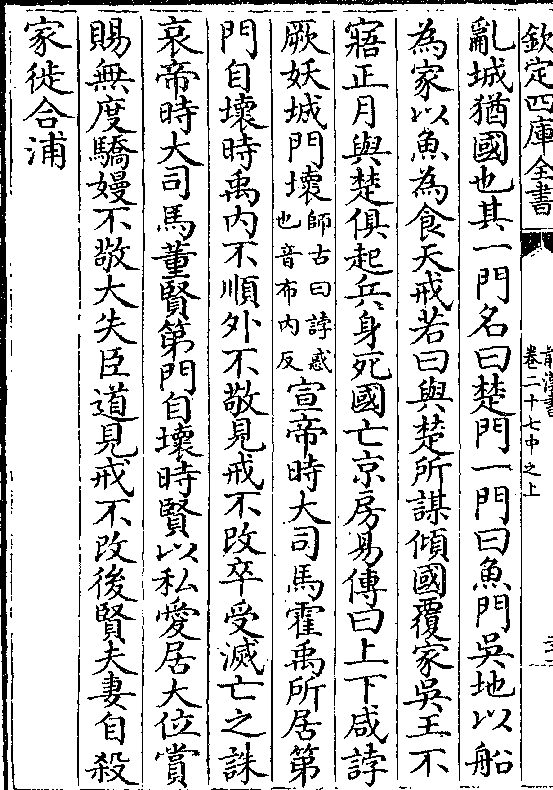 欽定四庫全書
前漢書
卷二十七中之上
亂城猶國也其一門名曰楚門一門曰魚門吳地以船
為家以魚為食天戒若曰與楚所謀傾國覆家吳王不
寤正月與楚俱起兵身死國亡京房易傳曰上下咸誖
厥妖城門壞師古曰誖惑
也音布内反宣帝時大司馬霍禹所居第
門自壞時禹内不順外不敬見戒不改卒受滅亡之誅
哀帝時大司馬董賢第門自壞時賢以私愛居大位賞
賜無度驕嫚不敬大失臣道見戒不改後賢夫妻自殺
家徙合浦